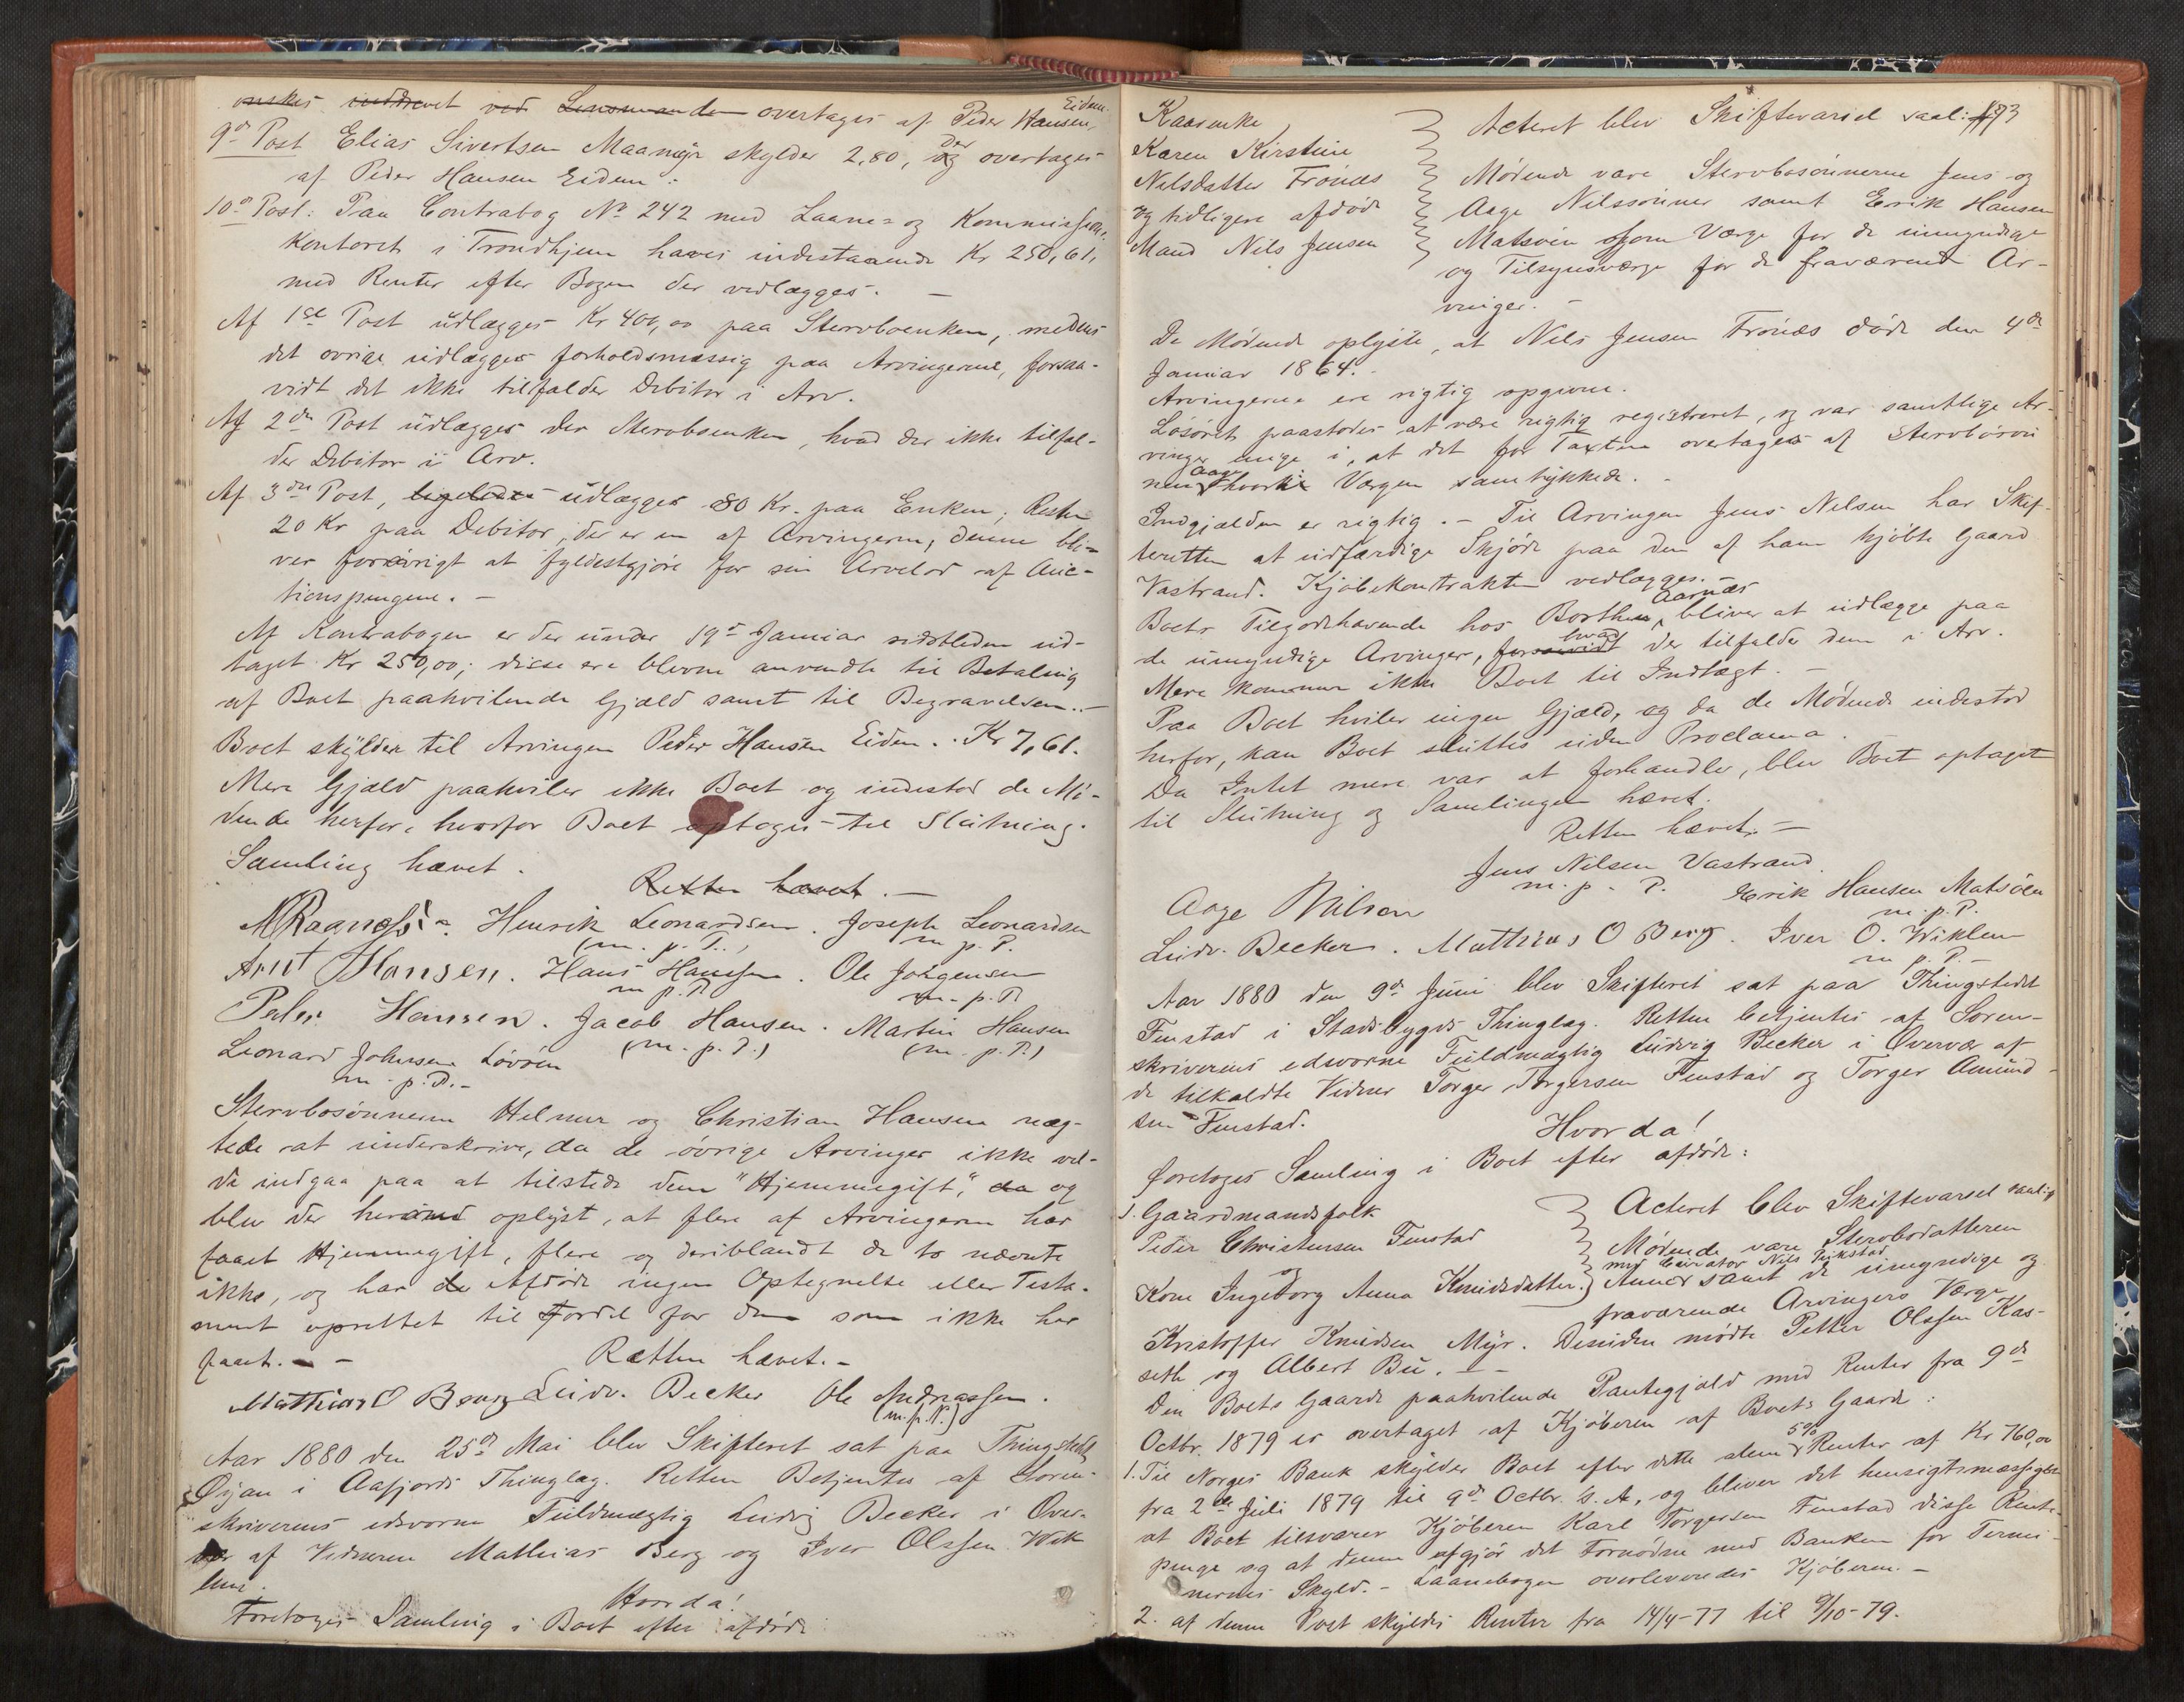 ønskes inddrevet ved Lensmanden overtages af Peder Hansen Eidem.
9de Post Elias Sivertsen Maamyr skylder 2,80, der og overtages
af Peder Hansen Eidem.
10de Post: Paa Contrabog No 242 med Laane- og Kommissions-
kontoret i Trondhjem haves indestaaende Kr 250,61,
med Renter efter Bogen der vedlægges. —
Af 1ste Post udlægges Kr 400,00 paa Stervboenken, medens
det øvrige udlægges forholdsmæssig paa Arvingerne, forsaa-
vidt det ikke tilfalder Debitor i Arv.
Af 2den Post udlægges der Stervboenken, hvad der ikke tilfal-
der Debitor i Arv.
Af 3die Post, ligeledes udlægges 80 Kr. paa Enken; Resten
20 Kr paa Debitor, der er en af Arvingerne, denne bli-
ver forøvrigt at fyldestgjøre for sin Arvelod af Auc-
tionspengene. —
Af Kontrabogen er der under 19de Januar sidstleden ud-
taget Kr 250,00; disse ere blevne anvendte til Betaling
af Boet paahvilende Gjæld samt til Begravelsen. —
Boet skylder til Arvingen Peder Hansen Eidem. Kr 7,61.
Mere Gjæld paahviler ikke Boet og indestod de Mø-
dende herfor, hvorfor Boet optoges til Slutning.
Samling hævet.
Retten hævet. —
Henrik Leonardsen. Joseph Leonardsen
(m. p. P.) m. p. P.
Arnt Hansen. Hans Hansen. Ole Jørgensen
m. p. P. m. p. P.
Peder Hansen. Jacob Hansen. Martin Hansen
(m. p. P.) (m. p. P.)
Leonard Johnsen Løvøen
m. p. P. —
Stervbosønnerne Helmer og Christian Hansen næg-
tede at underskrive, da de øvrige Arvinger ikke vil-
de indgaa paa at tilstede dem "Hjemmegift", da og
blev der herunder oplyst, at flere af Arvingerne har
faaet Hjemmegift, flere og deriblandt de to nævnte
ikke, og har de Afdøde ingen Optegnelse eller Testa-
ment oprettet til Fordel for dem som ikke har
faaet. — Retten hævet. —
Mathias O Berg Ludv. Becker Ole Andreassen.
(m. p. P.)
Aar 1880 den 25de Mai blev Skifteret sat paa Thingstedet
Øyan i Aafjords Thinglag. Retten Betjentes af Soren-
skriverens edsvorne Fuldmægtig Ludvig Becker i Over-
vær af Vidnerne Mathias Berg og Iver Olsen Wik-
len.
Hvorda!
Foretoges Samling i Boet efter afdøde
Kaarenke
Karen Kirstine
Nilsdatter Frønes
og tidligere afdøde
Mand Nils Jensen
Acteret blev Skiftevarsel saal: 193
Mødende vare Stervbosønnerne Jens og
Aage Nilssønner samt Erik Hansen
Matsøen som Værge for de umyndige
og Tilsynsværge for de fraværende Ar-
vinger. —
De Mødende oplyste, at Nils Jensen Frønes døde den 4de
Januar 1864. —
Arvingerne ere rigtig opgivne.
Løsøret paastodes at være rigtig registreret, og var samtlige Ar-
vinger enige i, at det for Taxten overtages af Stervbosøn
nen Aage hvori Værgen samtykkede. —
Indgjælden er rigtig. — Til Arvingen Jens Nilsen har Skif-
teretten at udfærdige Skjøde paa den af ham kjøbte Gaard
Vastrand. Kjøbekontrakten vedlægges. —
Boets Tilgodehavende hos Borthen Aarnæs bliver at udlægge paa
de umyndige Arvinger, forsaavidt hvad der tilfalder dem i Arv.
Mere kommer ikke Boet til Indtægt. —
Paa Boet hviler ingen Gjæld, og da de Mødende indestod
herfor, kan Boet sluttes uden Proclama.
Da Intet mere var at forhandle, blev Boet optaget
til Slutning og Samlingen hævet.
Retten hævet. —
Jens Nilsen Vastrand
m. p. P.
Aage Nilsen Erik Hansen Matsøen
m. p. P.
Ludv. Becker. Matthias O Berg. Iver O. Wiklen
m. p. P. —
Aar 1880 den 9de Juni blev Skifteret sat paa Thingstedet
Fenstad i Stadsbygds Thinglag. Retten betjentes af Soren-
skriverens edsvorne Fuldmægtig Ludvig Becker i Overvær af
de tilkaldte Vidner Torger Torgersen Fenstad og Torger Amund-
sen Fenstad.
Hvorda!
foretoges Samling i Boet efter afdøde:
1. Gaardmandsfolk
Peder Christensen Fenstad
og
Kone Ingeborg Anna Knudsdatter.
Acteret blev Skiftevarsel saal:
Mødende vare Stervbodatteren
med Curator Nils Rikstad
Anne samt de umyndige og
fraværende Arvingers Værge
Kristoffer Knudsen Myr. Desuden mødte Petter Olssen Kas-
seth og Albert Bu. —
Den Boets Gaard paahvilende Pantegjæld med Renter fra 9de
Octbr. 1879 er overtaget af Kjøberen af Boets Gaard:
1. Til Norges Bank skylder Boet efter dette alene 5% Renter af Kr 760,00
fra 2den Juli 1879 til 9de Octbr. s. A., og bliver det hensigtsmæssigst
at Boet tilsvarer Kjøberen Karl Torgersen Fenstad disse Rente-
penge og at denne afgjør det Fornødne med Banken for Termi-
nernes Skyld. — Laanebogen overleveredes Kjøberen. —
2. af denne Post skyldes Renter fra 14/4-77 til 9/10-79.